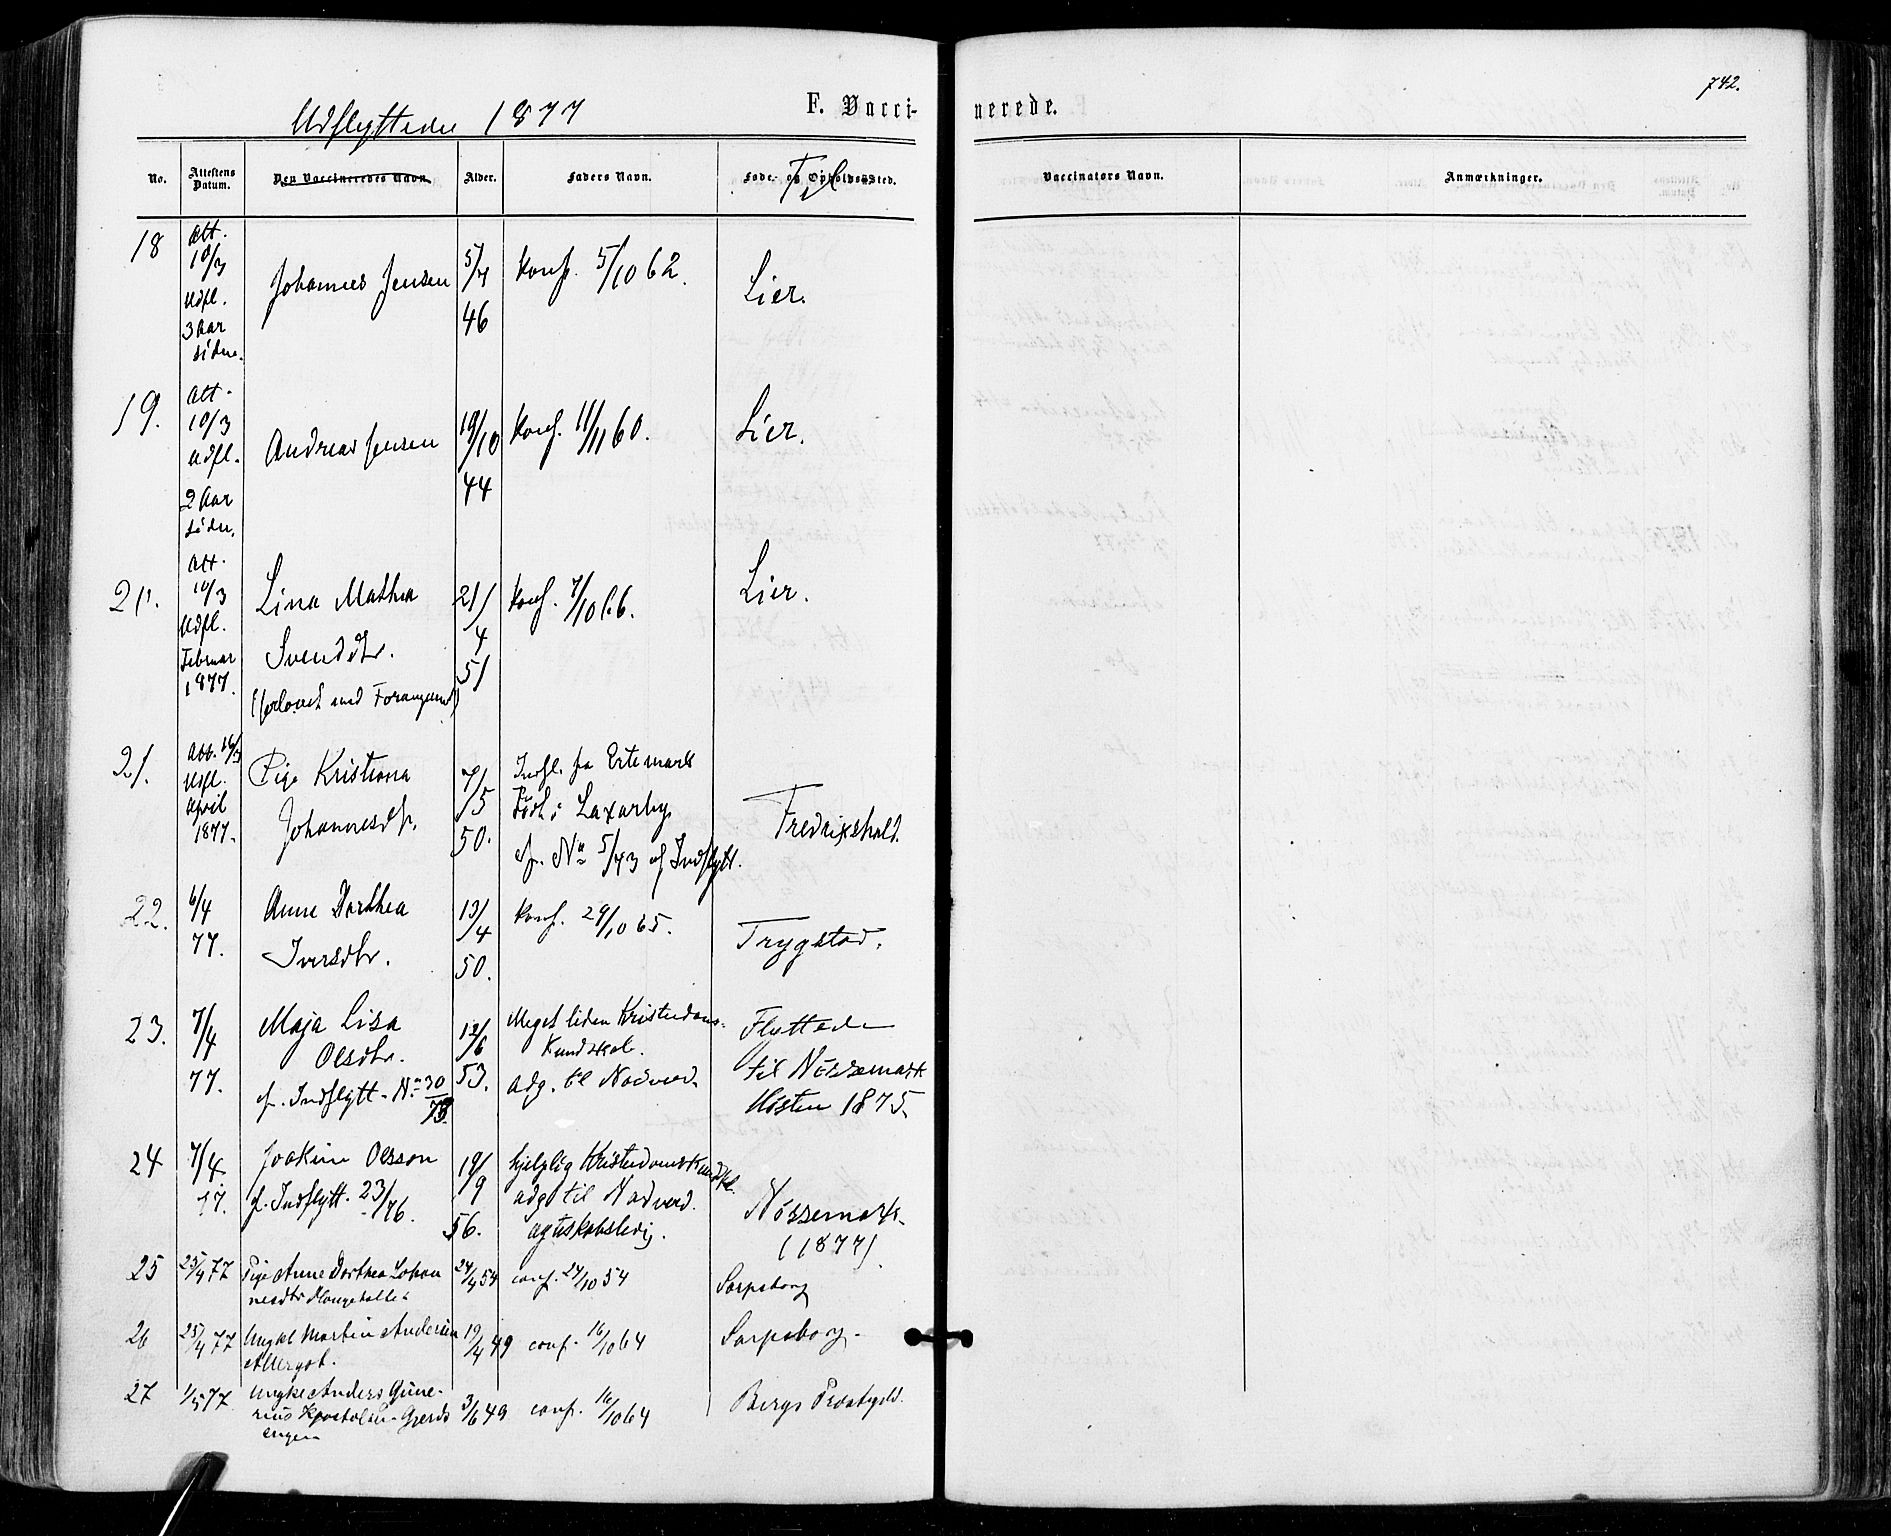 742.
Udflyttede 1877
F. Vacci-
nerede.
No.
Attestens Datum.
Den Vaccineredes Navn.
Alder.
Faders Navn.
Føde- og Opholds-Sted.
Til
Vaccinators Navn.
Anmærkninger.
18
Att.
10/3
Udfl.
3 Aar
siden.
Johannes Jensen
5/4
46
Konf. 5/10 62.
Lier.
19.
Att.
10/3
Udfl.
2 Aar
siden.
Andreas Jensen
19/10
44
Konf. 11/11 60.
Lier.
Att.
10/3
Udfl.
Februar
1877.
Lina Mathea
Svendsdtr.
(forlovet med Forangaaend)
21/
4
51
Konf. 7/10 66.
Lier.
21.
Att. 14/3
Udfl.
April
1877.
Pige Kristiana
Johannesdtr.
7/5
50.
Indfl. fra Ertemark
Född i Laxarby
cfr. No 5/73 af Indflytt.
Fredrikshald.
22.
6/4
77.
Anne Dorthea
Iversdtr.
13/4
50.
Konf. 29/10 65.
Trygstad.
23.
7/4
77.
Maja Lisa
Olsdtr.
cf. Indflytt. No 30/73.
12/6
53.
Meget liden Kristendoms-
Kundskab.
adg. til Nadverd.
Flyttede
til Nössemark
Hösten 1875.
24
7/4
77.
Joakim Olsson
cf. Indflytt. 23/76.
19/9
56.
hjelplig Kristendomskundsk.
adg. til Nadverd.
ægteskabsledig.
Nössemark.
(1877)
25
25/4 77
Pige Anne Dorthea Johan
nesdtr Haugehalle
24/4 54
conf. 24/10 54
Sarpsborg
26
25/4 77
Ungkl Martin Andersen
19/4 49
conf. 16/10 64
Sarpsborg.
27
1/5 77
Ungke Anders Gune-
rius Apostolsen Gjerds
engen
3/6 49
conf. 16/10 64
Bergs Præstegjld.